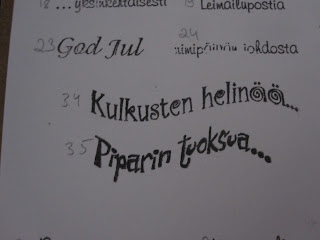 18 ...yksinkertaisesti 19 Leimailupostia
23 God Jul 24 nimipäivän johdosta
34 Kulkusten helinää...
35 Piparin tuoksua...